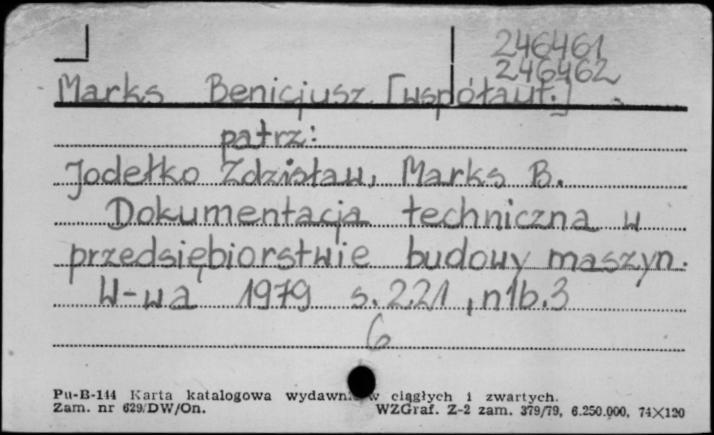 246461
246462
Marks Benicjusz [współaut.]
patrz:
Jodełko Zdzisław, Marks B.
Dokumentacja techniczna w
przedsiębiorstwie budowy maszyn.
W-wa 1979 s. 221, nlb. 3
6
Pu-B-144 Karta katalogowa wydawn. w ciągłych i zwartych.
Zam. nr 629/DW/On. WZGraf. Z-2 zam. 379/79, 6.250.000, 74×120